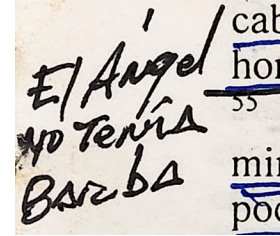 El Ángel
no Tenía
Barba
cab
hor
55
min
poc